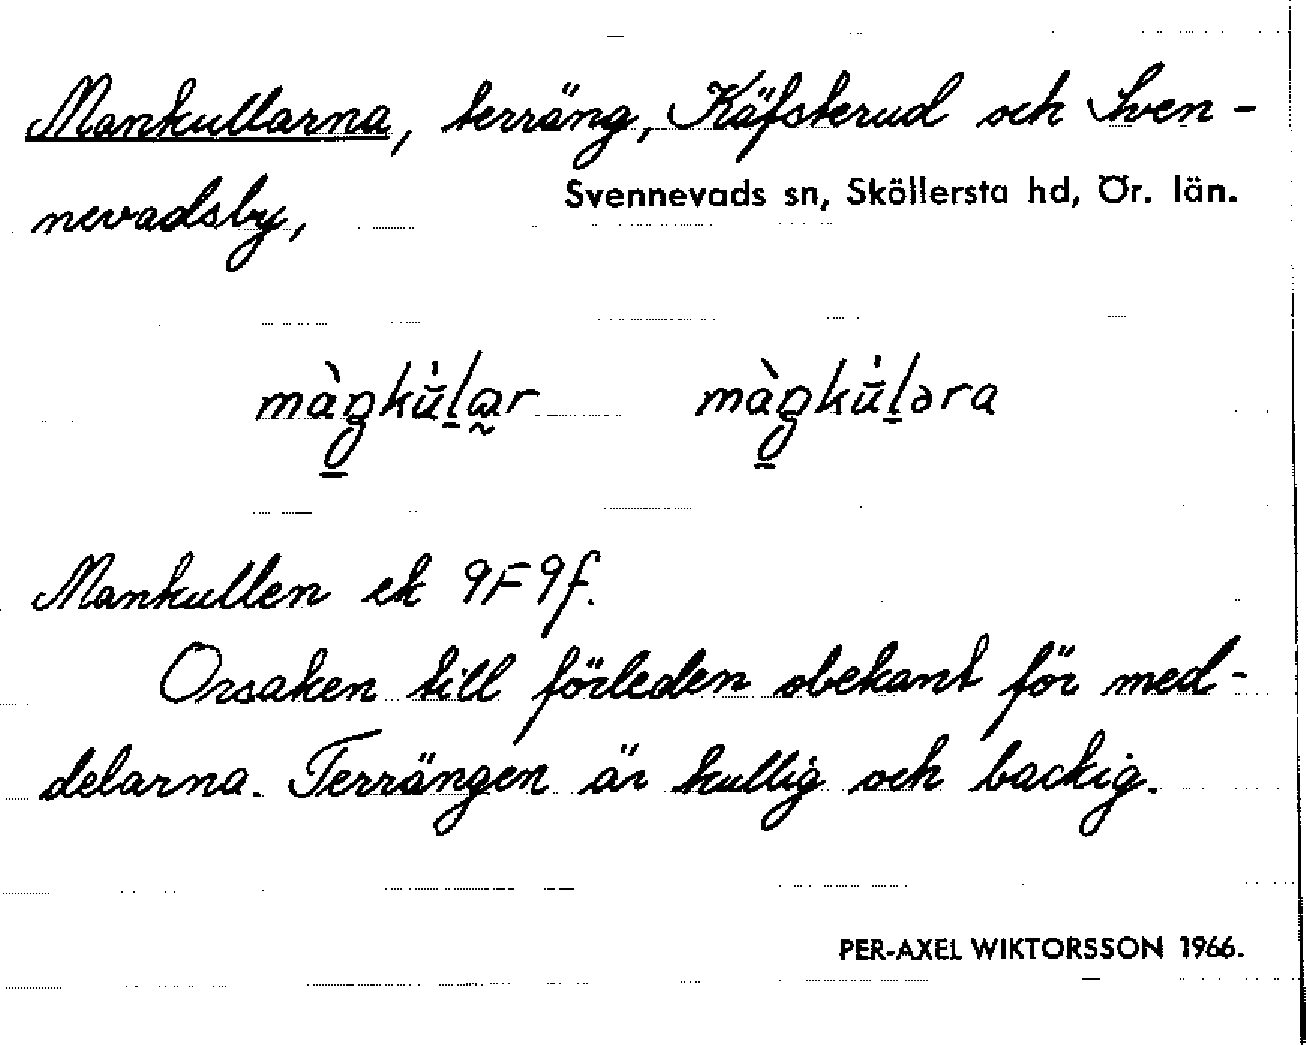 Mankullarna, terräng, Käfsterud och Sven-
nevadsby,
Svennevads sn, Sköllersta hd, Ör. län.
Mankullen ek 9F9f.
Orsaken till förleden obekant för med-
delarna. Terrängen är kullig och backig.
PER-AXEL WIKTORSSON 1966.